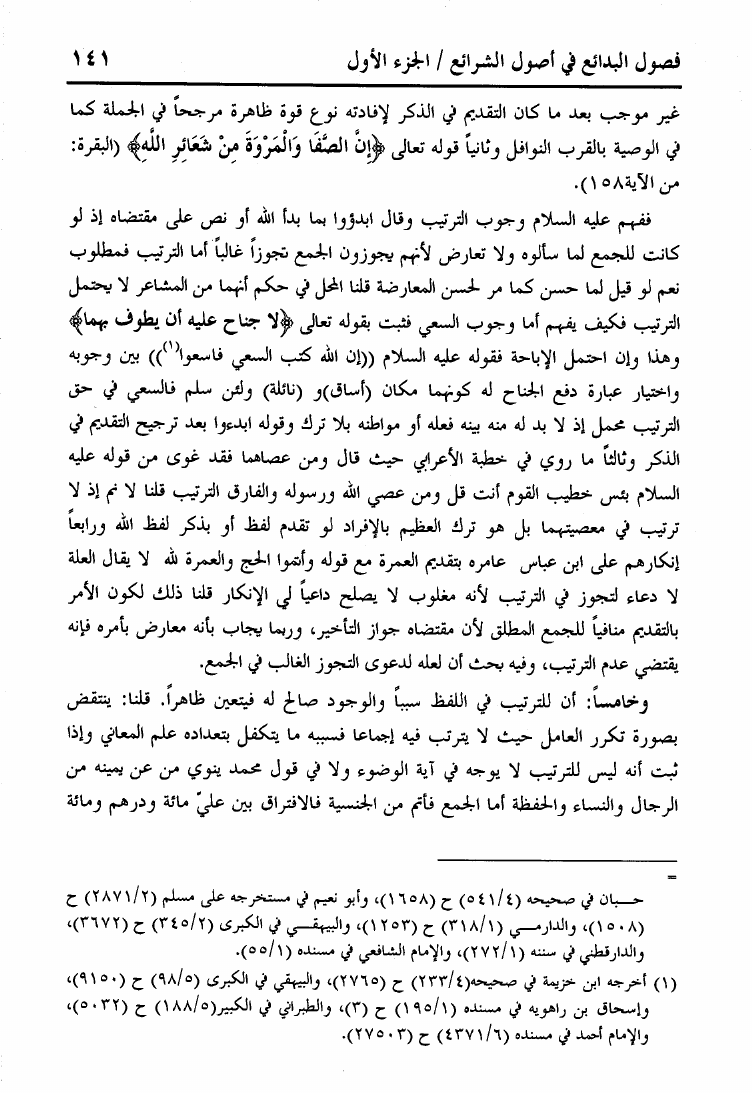 فصول البدائع في أصول الشرائع / الجزء الأول ١٤١
غير موجب بعد ما كان التقديم في الذكر لإفادته نوع قوة ظاهرة مرجحاً في الجملة كما
في الوصية بالقرب النوافل وثانياً قوله تعالى ﴿إِنَّ الصَّفَا وَالْمَرْوَةَ مِنْ شَعَائِرِ اللَّهِ﴾ (البقرة:
من الآية١٥٨).
ففهم عليه السلام وجوب الترتيب وقال ابدؤوا بما بدأ الله أو نص على مقتضاه إذ لو
كانت للجمع لما سألوه ولا تعارض لأنهم يجوزون الجمع تجوزاً غالباً أما الترتيب فمطلوب
نعم لو قيل لما حسن كما مر لحسن المعارضة قلنا المحل في حكم أنهما من المشاعر لا يحتمل
الترتيب فكيف يفهم أما وجوب السعي فثبت بقوله تعالى ﴿لا جناح عليه أن يطوف بهما﴾
وهذا وإن احتمل الإباحة فقوله عليه السلام ((إن الله كتب السعي فاسعوا(١))) بين وجوبه
واختيار عبارة دفع الجناح له كونهما مكان (أساق)و (نائلة) ولئن سلم فالسعي في حق
الترتيب مجمل إذ لا بد له منه بينه فعله أو مواطنه بلا ترك وقوله ابدءوا بعد ترجيح التقديم في
الذكر وثالثاً ما روي في خطبة الأعرابي حيث قال ومن عصاهما فقد غوى من قوله عليه
السلام بئس خطيب القوم أنت قل ومن عصي الله ورسوله والفارق الترتيب قلنا لا نم إذ لا
ترتيب في معصيتهما بل هو ترك العظيم بالإفراد لو تقدم لفظ أو بذكر لفظ الله ورابعاً
إنكارهم على ابن عباس عامره بتقديم العمرة مع قوله وأتموا الحج والعمرة لله لا يقال العلة
لا دعاء لتجوز في الترتيب لأنه مغلوب لا يصلح داعياً لي الإنكار قلنا ذلك لكون الأمر
بالتقديم منافياً للجمع المطلق لأن مقتضاه جواز التأخير، وربما يجاب بأنه معارض بأمره فإنه
يقتضي عدم الترتيب، وفيه بحث أن لعله لدعوى التجوز الغالب في الجمع.
وخامساً: أن للترتيب في اللفظ سبباً والوجود صالح له فيتعين ظاهراً. قلنا: ينتقض
بصورة تكرر العامل حيث لا يترتب فيه إجماعا فسببه ما يتكفل بتعداده علم المعاني وإذا
ثبت أنه ليس للترتيب لا يوجه في آية الوضوء ولا في قول محمد ينوي من عن يمينه من
الرجال والنساء والحفظة أما الجمع فأتم من الجنسية فالافتراق بين عليّ مائة ودرهم ومائة
=
حبان في صحيحه (٥٤١/٤) ح (١٦٥٨)، وأبو نعيم في مستخرجه على مسلم (٢٨٧١/٢) ح
(١٥٠٨)، والدارمي (٣١٨/١) ح (١٢٥٣)، والبيهقي في الكبرى (٣٤٥/٢) ح (٣٦٧٢)،
والدارقطني في سننه (٢٧٢/١)، والإمام الشافعي في مسنده (٥٥/١).
(١) أخرجه ابن خزيمة في صحيحه(٢٣٣/٤) ح (٢٧٦٥)، والبيهقي في الكبرى (٩٨/٥) ح (٩١٥٠)،
وإسحاق بن راهويه في مسنده (١٩٥/١) ح (٣)، والطبراني في الكبير(١٨٨/٥) ح (٥٠٣٢)،
والإمام أحمد في مسنده (٤٣٧١/٦) ح (٢٧٥٠٣).